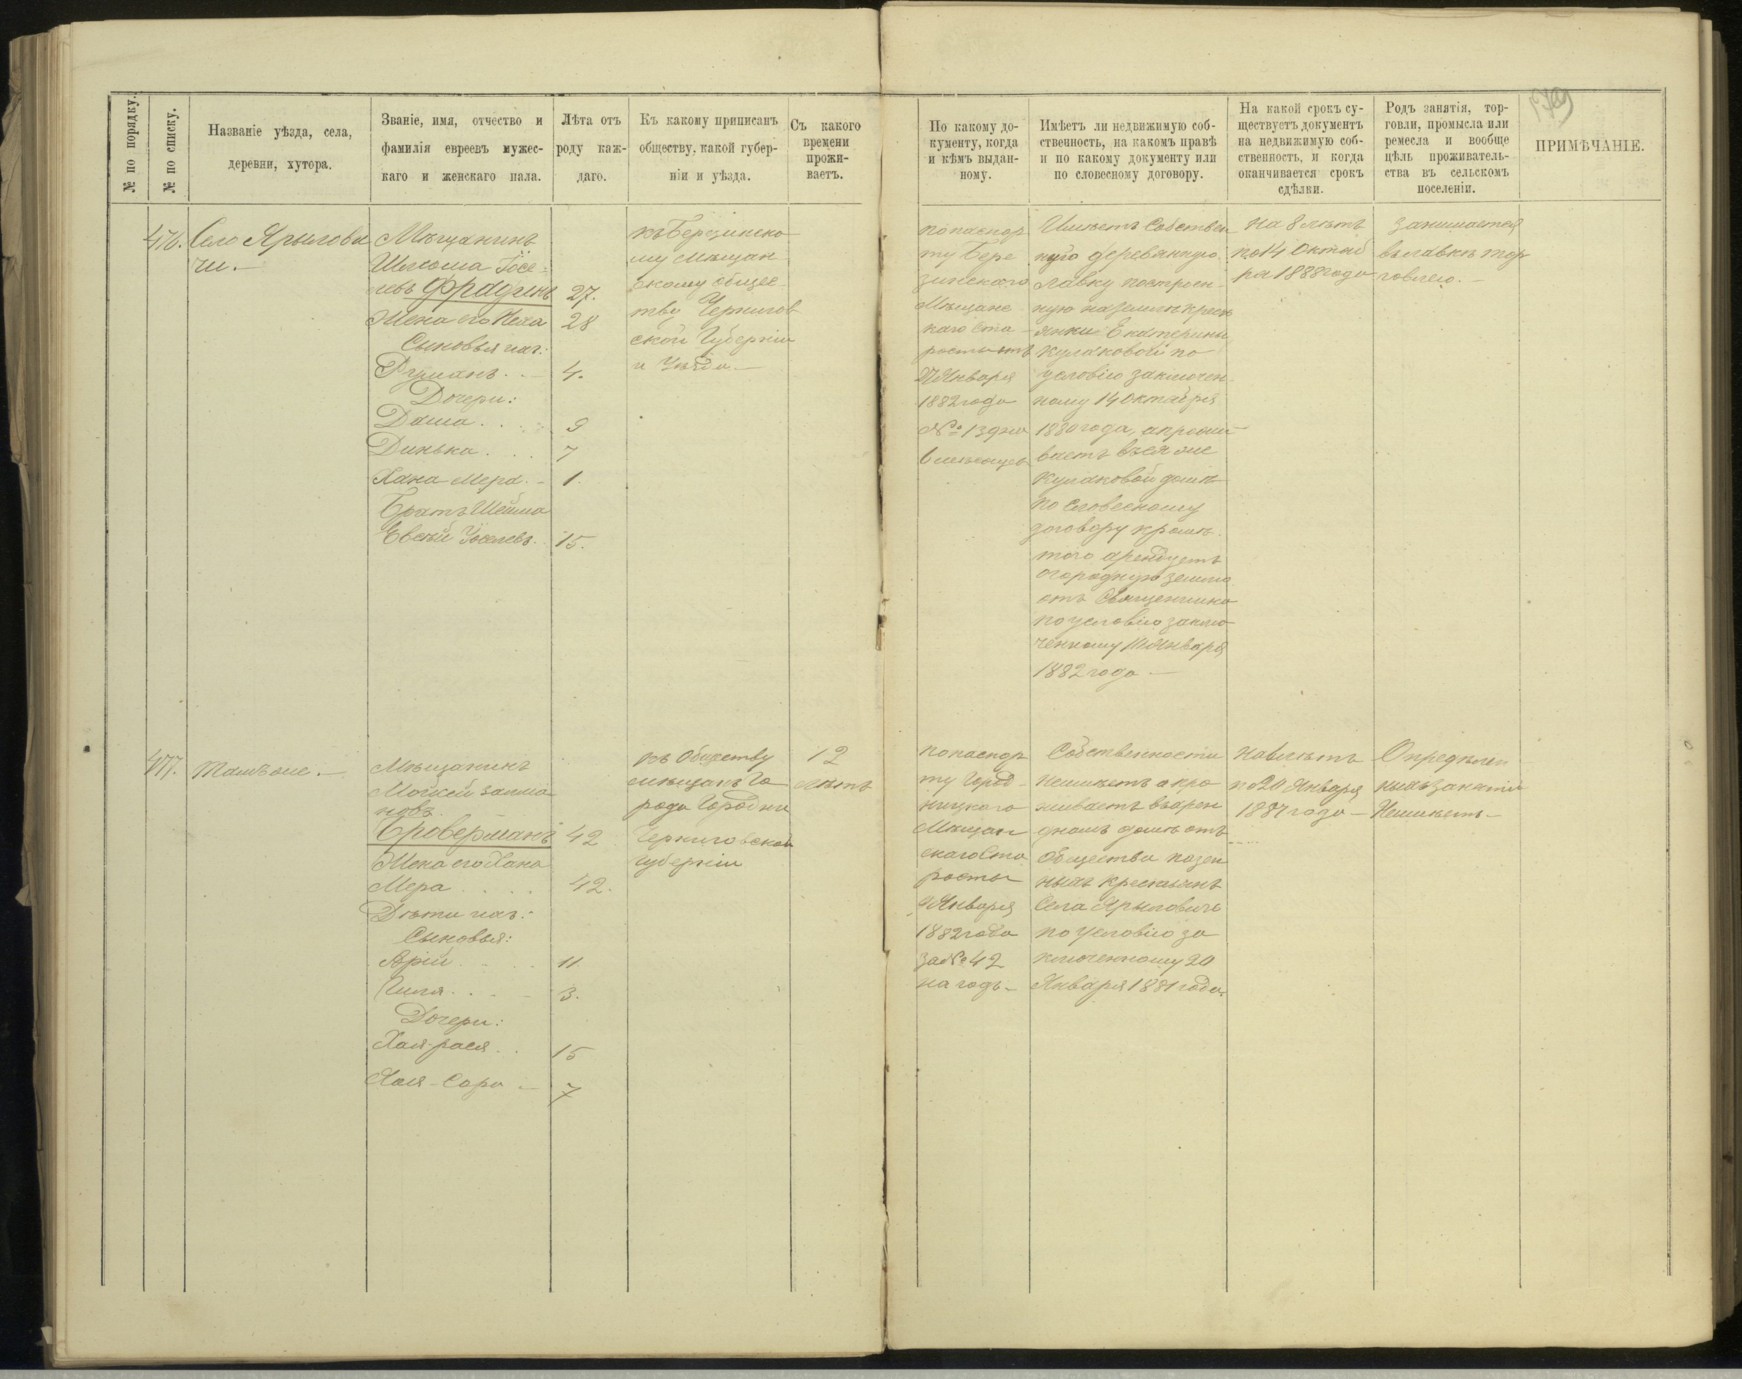 № по порядку.
№ по списку.
Названіе уѣзда, села,
деревни, хутора.
Званіе, имя, отчество и
фамилія евреевъ мужес-
каго и женскаго пала.
Лѣта отъ
роду каж-
даго.
Къ какому приписанъ
обществу, какой губер-
ніи и уѣзда.
Съ какого
времени
прожи-
ваетъ.
По какому до-
кументу, когда
и кѣмъ выдан-
ному.
Имѣетъ ли недвижимую соб-
ственность, на какомъ правѣ
и по какому документу или
по словесному договору.
На какой срокъ су-
ществуетъ документъ
на недвижимую соб-
ственность, и когда
оканчивается срокъ
сдѣлки.
Родъ занятія, тор-
говли, промысла или
ремесла и вообще
цѣль проживатель-
ства въ сельскомъ
поселеніи.
ПРИМѢЧАНІЕ.
476.
Село Ярылови
чи.—
Мѣщанинъ
Шлиома Iосе-
левъ Фрадинъ 27.
Жена его Неха 28
Сыновья ихъ:
4.
Дочери:
Даша 9
Динька 7
Хана-Мера 1.
Братъ
Евсей Іоселевъ 15.
къ Березинско-
му мѣщан-
скому общес-
тву Чернигов
ской Губерніи
и Уѣзда.—
по паспор
ту Бере
зинскаго
Мѣщанс
каго Ста-
росты отъ
27 Января
1882 года
№ 139 на
6 мѣсяцевъ
Имѣетъ собствен
ную деревянную
лавку построен-
ную на землѣ кресть
янки Екатерины
Кулаковой по
условію заключен
ному 14 Октября
1880 года, а прожи-
ваетъ въ ея же
Кулаковой домѣ
по словесному
договору кромѣ
того арендуетъ
огородную землю
отъ Священника
по условію заклю
ченному Января
1882 года —
на 8 лѣтъ
по 14 Октяб
ря 1888 года
Занимается
въ лавкѣ тор
говлею.—
477.
тамъ же.—
Мѣщанинъ
Мойсей Залма
новъ
Броверманъ 42
Жена его Хана
Мера 42.
Дѣти ихъ:
Сыновья:
Арій 11
Гиля 3.
Дочери:
Хая-рася 15
Хая-Сара — 7
къ Обществу
мѣщанъ го
рода Городни
Черниговской
губерніи
12
лѣтъ
по паспор
ту Город-
ницкаго
Мѣщан
скаго Ста
росты
Января
1882 года
за № 42
на годъ —
Собственности
неимѣетъ а про
живаетъ въ арен
дномъ домѣ отъ
Общества казен
ныхъ крестьянъ
Села Ярыловичъ
по условію за
ключенному 20
Января 1881 года.
на 6 лѣтъ
по 20 Января
1887 года —
Опредѣлен
ныхъ занятій
Неимѣетъ —